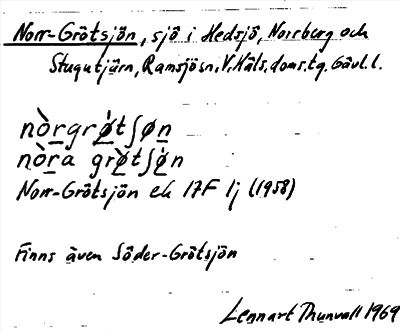 Norr-Grötsjön, sjö i Hedsjö, Norrberg och
Stugutjärn, Ramsjösn. V. Häls. doms. tg. Gävl. l.
nòrgrø̀tʃøn
nòra grø̀tʃøn
Norr-Grötsjön ek 17F 1j (1958)
Finns även Söder-Grötsjön
Lennart Thunvall 1969